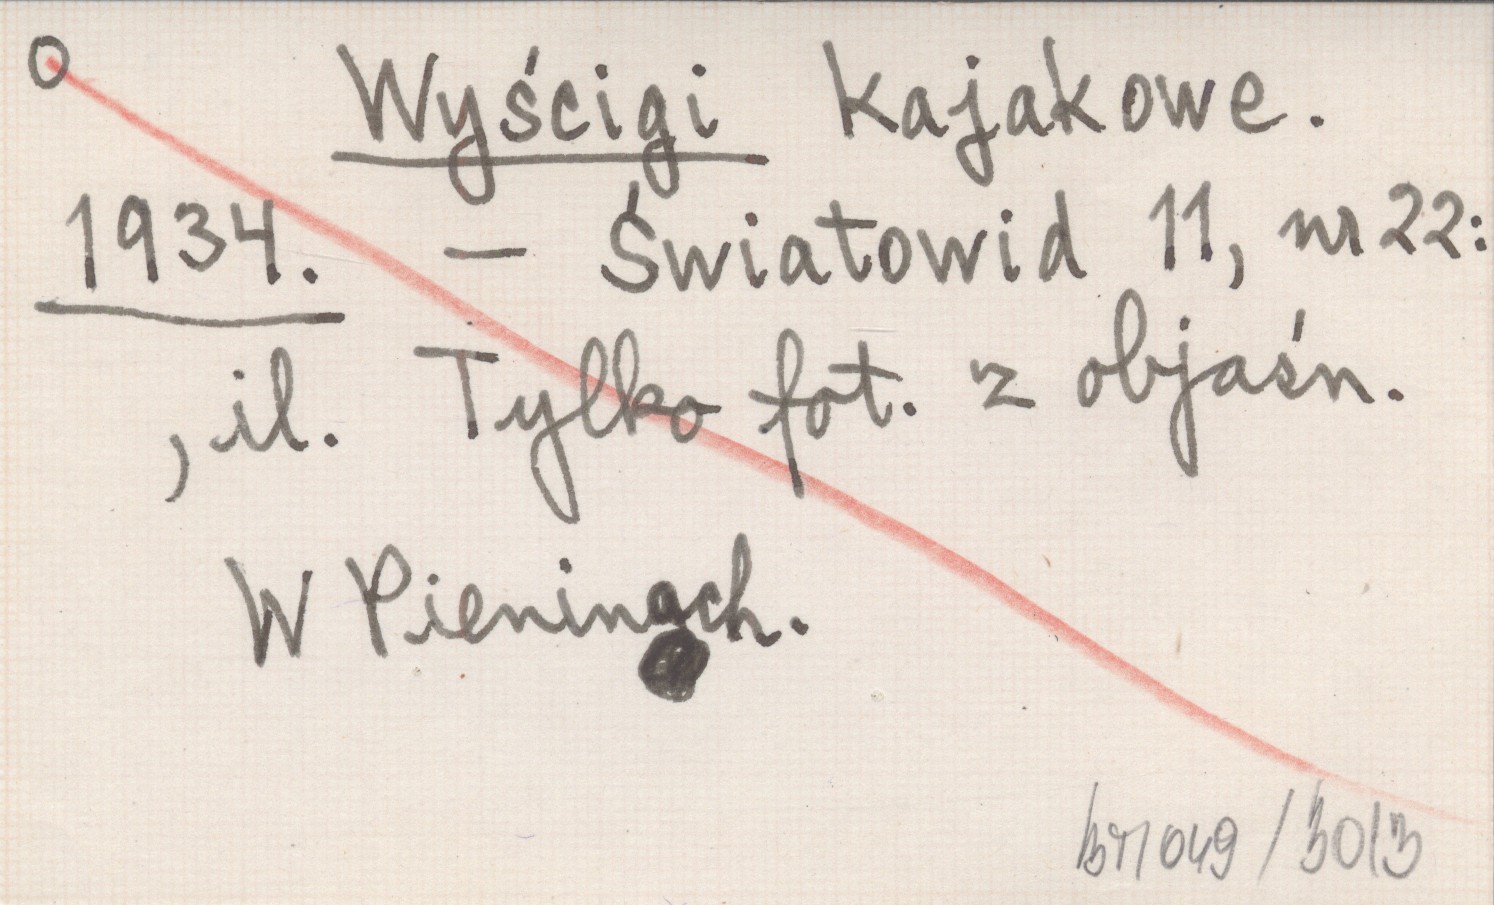 O
Wyścigi kajakowe.
1934. – Światowid 11, nr 22:
, il. Tylko fot. z objaśn.
W Pieninach.